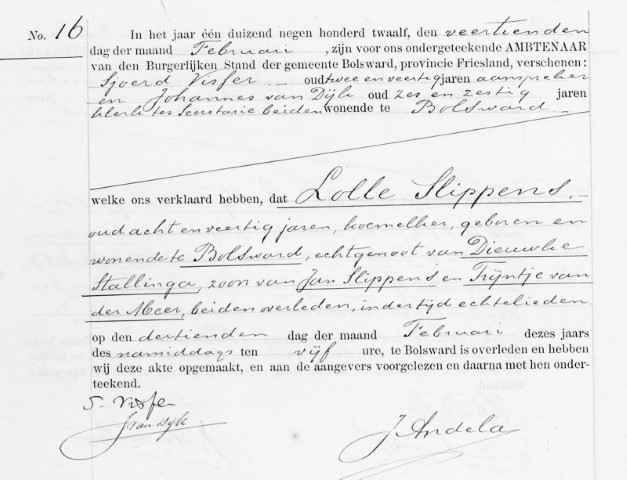 No. 16
In het jaar één duizend negen honderd twaalf, den veertienden
dag der maand Februari, zijn voor ons ondergeteekende AMBTENAAR
van den Burgerlijken Stand der gemeente Bolsward, provincie Friesland, verschenen:
Sjoerd Visser oud twee en veertig jaren aanspreker
en Johannes van Dijk oud zes en zestig jaren
klerk ter Secretarie beiden wonende te Bolsward
welke ons verklaard hebben, dat Lolle Slippens,
oud acht en veertig jaren, koemelker, geboren en
wonende te Bolsward, echtgenoot van Dieuwke
Stallinga, zoon van Jan Slippens en Trijntje van
der Meer, beiden overleden, in der tijd echtelieden
op den dertienden dag der maand Februari dezes jaars
des namiddags ten vijf ure, te Bolsward is overleden en hebben
wij deze akte opgemaakt, en aan de aangevers voorgelezen en daarna met hen onder-
teekend.
S. Visser
J van Dijk
J. Andela